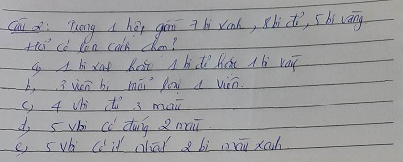 Câu 2: Trong 1 hộp gồm 7 bi xanh, 8 bi đỏ, 5 bi vàng
Hỏi có bao cách chọn?
a, 1 bi xanh hoặc 1 bi đỏ hoặc 1 bi vàng
b, 3 viên bi mỗi loại 1 viên.
c, 4 vbi đủ 3 màu
d, 5 vbi có đúng 2 màu
e, 5 vbi có ít nhất 2 bi màu xanh